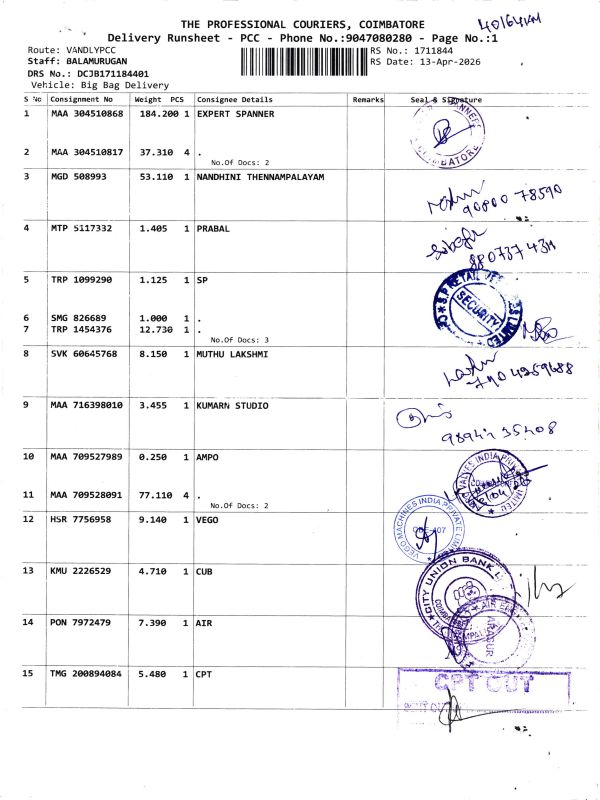 THE PROFESSIONAL COURIERS, COIMBATORE
Delivery Runsheet - PCC - Phone No.:9047080280 - Page No.:1
40/64KM
Route: VANDLYPCC
RS No.: 1711844
Staff: BALAMURUGAN
RS Date: 13-Apr-2026
DRS No.: DCJB171184401
Vehicle: Big Bag Delivery
S No Consignment No Weight PCS Consignee Details Remarks Seal & Signature
1 MAA 304510868 184.200 1 EXPERT SPANNER
2 MAA 304510817 37.310 4 .
No.Of Docs: 2
3 MGD 508993 53.110 1 NANDHINI THENNAMPALAYAM
78590
4 MTP 5117332 1.405 1 PRABAL
5 TRP 1099290 1.125 1 SP
SECURITY
6 SMG 826689 1.000 1 .
7 TRP 1454376 12.730 1 .
No.Of Docs: 3
8 SVK 60645768 8.150 1 MUTHU LAKSHMI
9 MAA 716398010 3.455 1 KUMARN STUDIO
10 MAA 709527989 0.250 1 AMPO
11 MAA 709528091 77.110 4 .
No.Of Docs: 2
12 HSR 7756958 9.140 1 VEGO
VEGO MACHINES INDIA PRIVATE LIM
13 KMU 2226529 4.710 1 CUB
CITY UNION BANK
14 PON 7972479 7.390 1 AIR
15 TMG 200894084 5.480 1 CPT
CPT CUT